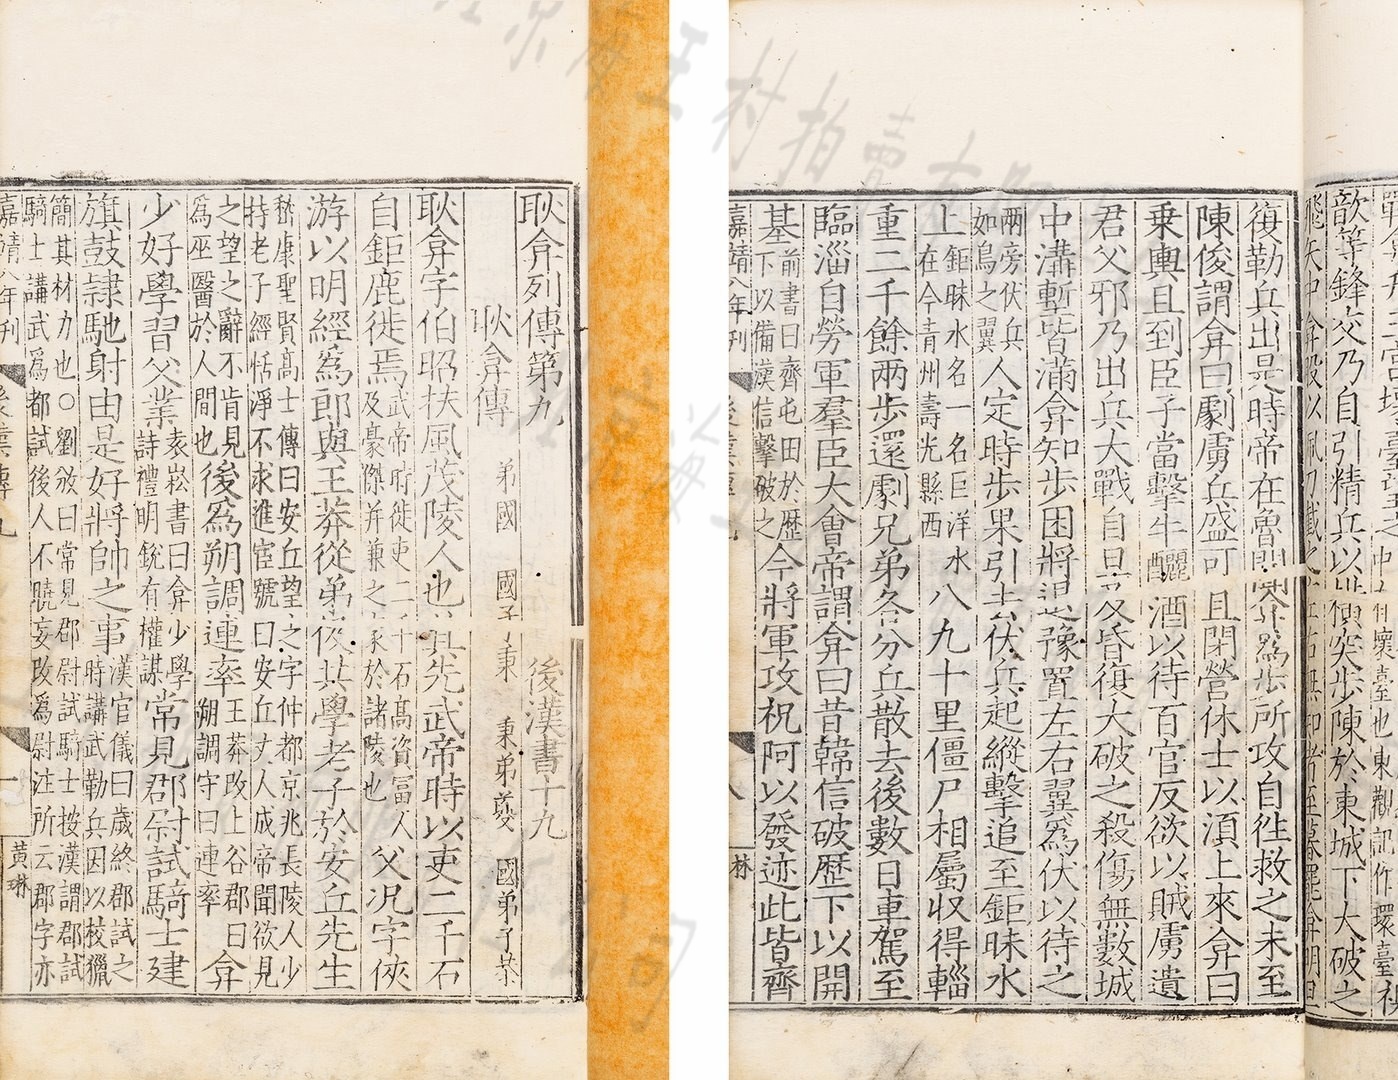 耿弇列傳第九 後漢書十九
耿弇傳 弟國 國子秉 秉弟夔 國弟子恭
耿弇字伯昭扶風茂陵人也其先武帝時以吏二千石
自鉅鹿徙焉武帝時徙吏二千石高資富人及豪傑并兼之家於諸陵也父况字俠
游以明經爲郎與王莽從弟伋共學老子於安丘先生
嵇康聖賢高士傳曰安丘望之字仲都京兆長陵人少持老子經恬淨不求進宦號曰安丘丈人成帝聞欲見
之望之辭不肯見爲巫醫於人間也後爲朔調連率王莽改上谷郡曰朔調守曰連率弇
少好學習父業袁崧書曰弇少學詩禮明銳有權謀常見郡尉試騎士建
旗鼓肄馳射由是好將帥之事漢官儀曰歲終郡試之時講武勒兵因以校獵
簡其材力也○劉攽曰常見郡尉試騎士按漢謂郡試騎士講武爲都試後人不曉妄改爲尉注所云郡字亦
嘉靖八年刊 後漢傳九 一 黃琳
戰弇升王宮壞臺望之中有壞臺也東觀記作環臺視
歆等鋒交乃自引精兵以橫突步陳於東城下大破之
飛矢中弇股以佩刀截之左右無知者至暮罷弇明旦
復勒兵出是時帝在魯聞弇爲步所攻自往救之未至
陳俊謂弇曰劇虜兵盛可且閉營休士以須上來弇曰
乗輿且到臣子當擊牛釃酒以待百官反欲以賊虜遺
君父邪乃出兵大戰自旦及昏復大破之殺傷無數城
中溝塹皆滿弇知步困將退豫置左右翼爲伏以待之
兩旁伏兵如鳥之翼人定時步果引去伏兵起縱擊追至鉅昧水
上鉅昧水名一名巨洋水在今青州壽光縣西八九十里僵尸相屬収得輜
重二千餘兩步還劇兄弟各分兵散去後數日車駕至
臨淄自勞軍羣臣大會帝謂弇曰昔韓信破歷下以開
基前書曰齊屯田於歷下以備漢信擊破之今將軍攻祝阿以發迹此皆齊
嘉靖八年刊 後漢傳九 八 林